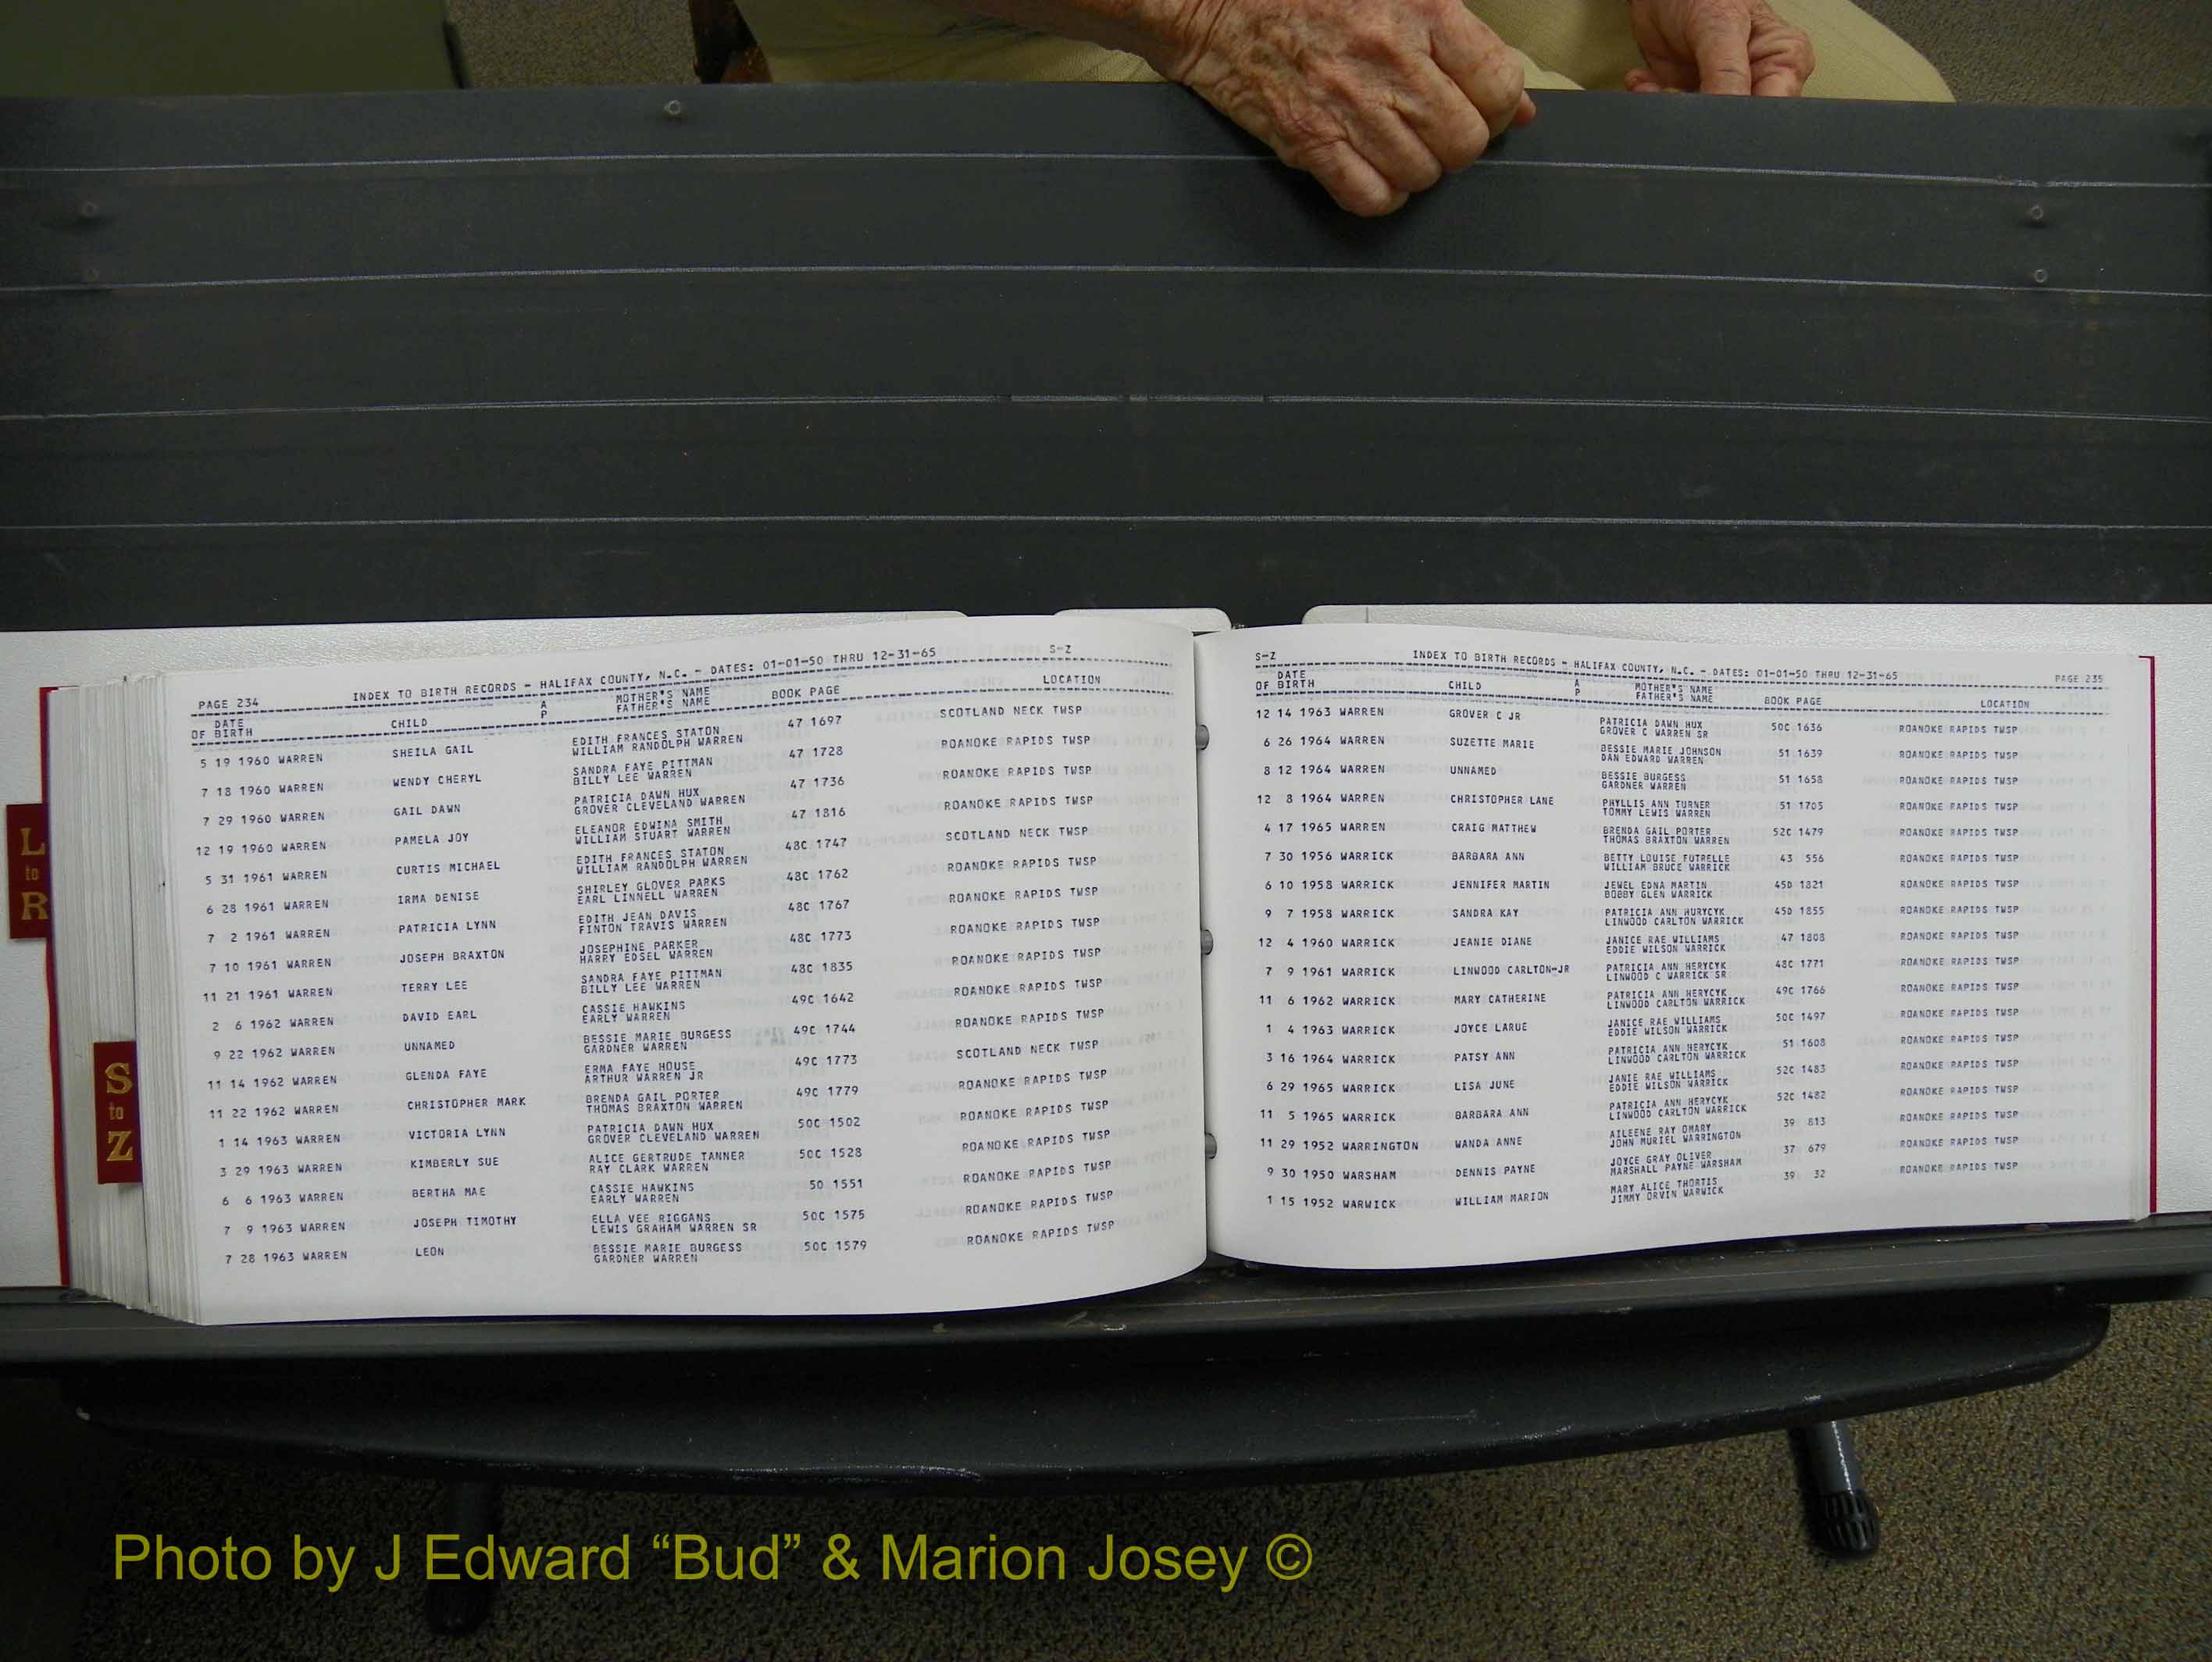 L
to
R
S
to
Z
PAGE 234 INDEX TO BIRTH RECORDS - HALIFAX COUNTY, N.C. - DATES: 01-01-50 THRU 12-31-65 S-Z
DATE OF BIRTH CHILD A P MOTHER'S NAME FATHER'S NAME BOOK PAGE LOCATION
5 19 1960 WARREN SHEILA GAIL EDITH FRANCES STATON WILLIAM RANDOLPH WARREN 47 1697 SCOTLAND NECK TWSP
7 18 1960 WARREN WENDY CHERYL SANDRA FAYE PITTMAN BILLY LEE WARREN 47 1728 ROANOKE RAPIDS TWSP
7 29 1960 WARREN GAIL DAWN PATRICIA DAWN HUX GROVER CLEVELAND WARREN 47 1736 ROANOKE RAPIDS TWSP
12 19 1960 WARREN PAMELA JOY ELEANOR EDWINA SMITH WILLIAM STUART WARREN 47 1816 ROANOKE RAPIDS TWSP
5 31 1961 WARREN CURTIS MICHAEL EDITH FRANCES STATON WILLIAM RANDOLPH WARREN 48C 1747 SCOTLAND NECK TWSP
6 28 1961 WARREN IRMA DENISE SHIRLEY GLOVER PARKS EARL LINNELL WARREN 48C 1762 ROANOKE RAPIDS TWSP
7 2 1961 WARREN PATRICIA LYNN EDITH JEAN DAVIS FINTON TRAVIS WARREN 48C 1767 ROANOKE RAPIDS TWSP
7 10 1961 WARREN JOSEPH BRAXTON JOSEPHINE PARKER HARRY EDSEL WARREN 48C 1773 ROANOKE RAPIDS TWSP
11 21 1961 WARREN TERRY LEE SANDRA FAYE PITTMAN BILLY LEE WARREN 48C 1835 ROANOKE RAPIDS TWSP
2 6 1962 WARREN DAVID EARL CASSIE HAWKINS EARLY WARREN 49C 1642 ROANOKE RAPIDS TWSP
9 22 1962 WARREN UNNAMED BESSIE MARIE BURGESS GARDNER WARREN 49C 1744 ROANOKE RAPIDS TWSP
11 14 1962 WARREN GLENDA FAYE ERMA FAYE HOUSE ARTHUR WARREN JR 49C 1773 SCOTLAND NECK TWSP
11 22 1962 WARREN CHRISTOPHER MARK BRENDA GAIL PORTER THOMAS BRAXTON WARREN 49C 1779 ROANOKE RAPIDS TWSP
1 14 1963 WARREN VICTORIA LYNN PATRICIA DAWN HUX GROVER CLEVELAND WARREN 50C 1502 ROANOKE RAPIDS TWSP
3 29 1963 WARREN KIMBERLY SUE ALICE GERTRUDE TANNER RAY CLARK WARREN 50C 1528 ROANOKE RAPIDS TWSP
6 6 1963 WARREN BERTHA MAE CASSIE HAWKINS EARLY WARREN 50 1551 ROANOKE RAPIDS TWSP
7 9 1963 WARREN JOSEPH TIMOTHY ELLA VEE RIGGANS LEWIS GRAHAM WARREN SR 50C 1575 ROANOKE RAPIDS TWSP
7 28 1963 WARREN LEON BESSIE MARIE BURGESS GARDNER WARREN 50C 1579 ROANOKE RAPIDS TWSP
S-Z INDEX TO BIRTH RECORDS - HALIFAX COUNTY, N.C. - DATES: 01-01-50 THRU 12-31-65 PAGE 235
DATE OF BIRTH CHILD A P MOTHER'S NAME FATHER'S NAME BOOK PAGE LOCATION
12 14 1963 WARREN GROVER C JR PATRICIA DAWN HUX GROVER C WARREN SR 50C 1636 ROANOKE RAPIDS TWSP
6 26 1964 WARREN SUZETTE MARIE BESSIE MARIE JOHNSON DAN EDWARD WARREN 51 1639 ROANOKE RAPIDS TWSP
8 12 1964 WARREN UNNAMED BESSIE BURGESS GARDNER WARREN 51 1658 ROANOKE RAPIDS TWSP
12 8 1964 WARREN CHRISTOPHER LANE PHYLLIS ANN TURNER TOMMY LEWIS WARREN 51 1705 ROANOKE RAPIDS TWSP
4 17 1965 WARREN CRAIG MATTHEW BRENDA GAIL PORTER THOMAS BRAXTON WARREN 52C 1479 ROANOKE RAPIDS TWSP
7 30 1956 WARRICK BARBARA ANN BETTY LOUISE FUTRELLE WILLIAM BRUCE WARRICK 43 556 ROANOKE RAPIDS TWSP
6 10 1958 WARRICK JENNIFER MARTIN JEWEL EDNA MARTIN BOBBY GLEN WARRICK 45D 1821 ROANOKE RAPIDS TWSP
9 7 1958 WARRICK SANDRA KAY PATRICIA ANN HURYCYK LINWOOD CARLTON WARRICK 45D 1855 ROANOKE RAPIDS TWSP
12 4 1960 WARRICK JEANIE DIANE JANICE RAE WILLIAMS EDDIE WILSON WARRICK 47 1808 ROANOKE RAPIDS TWSP
7 9 1961 WARRICK LINWOOD CARLTON-JR PATRICIA ANN HERYCYK LINWOOD C WARRICK SR 48C 1771 ROANOKE RAPIDS TWSP
11 6 1962 WARRICK MARY CATHERINE PATRICIA ANN HERYCYK LINWOOD CARLTON WARRICK 49C 1766 ROANOKE RAPIDS TWSP
1 4 1963 WARRICK JOYCE LARUE JANICE RAE WILLIAMS EDDIE WILSON WARRICK 50C 1497 ROANOKE RAPIDS TWSP
3 16 1964 WARRICK PATSY ANN PATRICIA ANN HERYCYK LINWOOD CARLTON WARRICK 51 1608 ROANOKE RAPIDS TWSP
6 29 1965 WARRICK LISA JUNE JANIE RAE WILLIAMS EDDIE WILSON WARRICK 52C 1483 ROANOKE RAPIDS TWSP
11 5 1965 WARRICK BARBARA ANN PATRICIA ANN HERYCYK LINWOOD CARLTON WARRICK 52C 1482 ROANOKE RAPIDS TWSP
11 29 1952 WARRINGTON WANDA ANNE AILEENE RAY OMARY JOHN MURIEL WARRINGTON 39 813 ROANOKE RAPIDS TWSP
9 30 1950 WARSHAM DENNIS PAYNE JOYCE GRAY OLIVER MARSHALL PAYNE WARSHAM 37 679 ROANOKE RAPIDS TWSP
1 15 1952 WARWICK WILLIAM MARION MARY ALICE THORTIS JIMMY ORVIN WARWICK 39 32 ROANOKE RAPIDS TWSP
Photo by J Edward “Bud” & Marion Josey ©